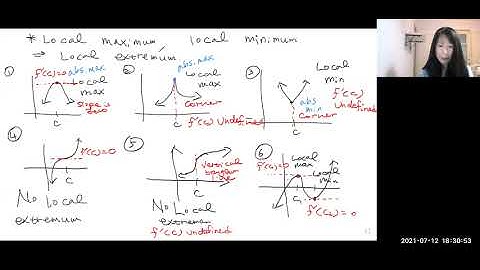 * Local maximum, local minimum
⇒ Local extremum
① f'(c)=0 abs. max
Local max
slope is zero
c
② abs. max
Local max
corner
c f'(c) Undefined
③ Local min
f'(c) Undefined
abs min
corner
c
④ f'(c)=0
c
No Local extremum
⑤ vertical tangent line
c
No Local extrema
f'(c) undefined
⑥ f'(c)=0 Local max
Local min
c
f'(c₂)=0
2021-07-12 18:30:53